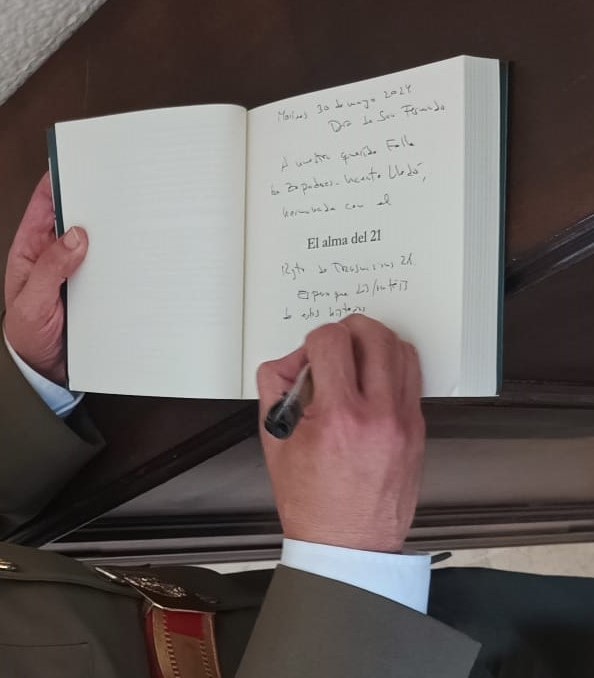 Marines 30 de mayo 2024
Día de San Fernando
A nuestra querida Falla
los Zapadores-Vicente Lledó,
hermanada con el
El alma del 21
Rgto de Trasmisiones 21.
Espero que disfrutéis
de estas historias